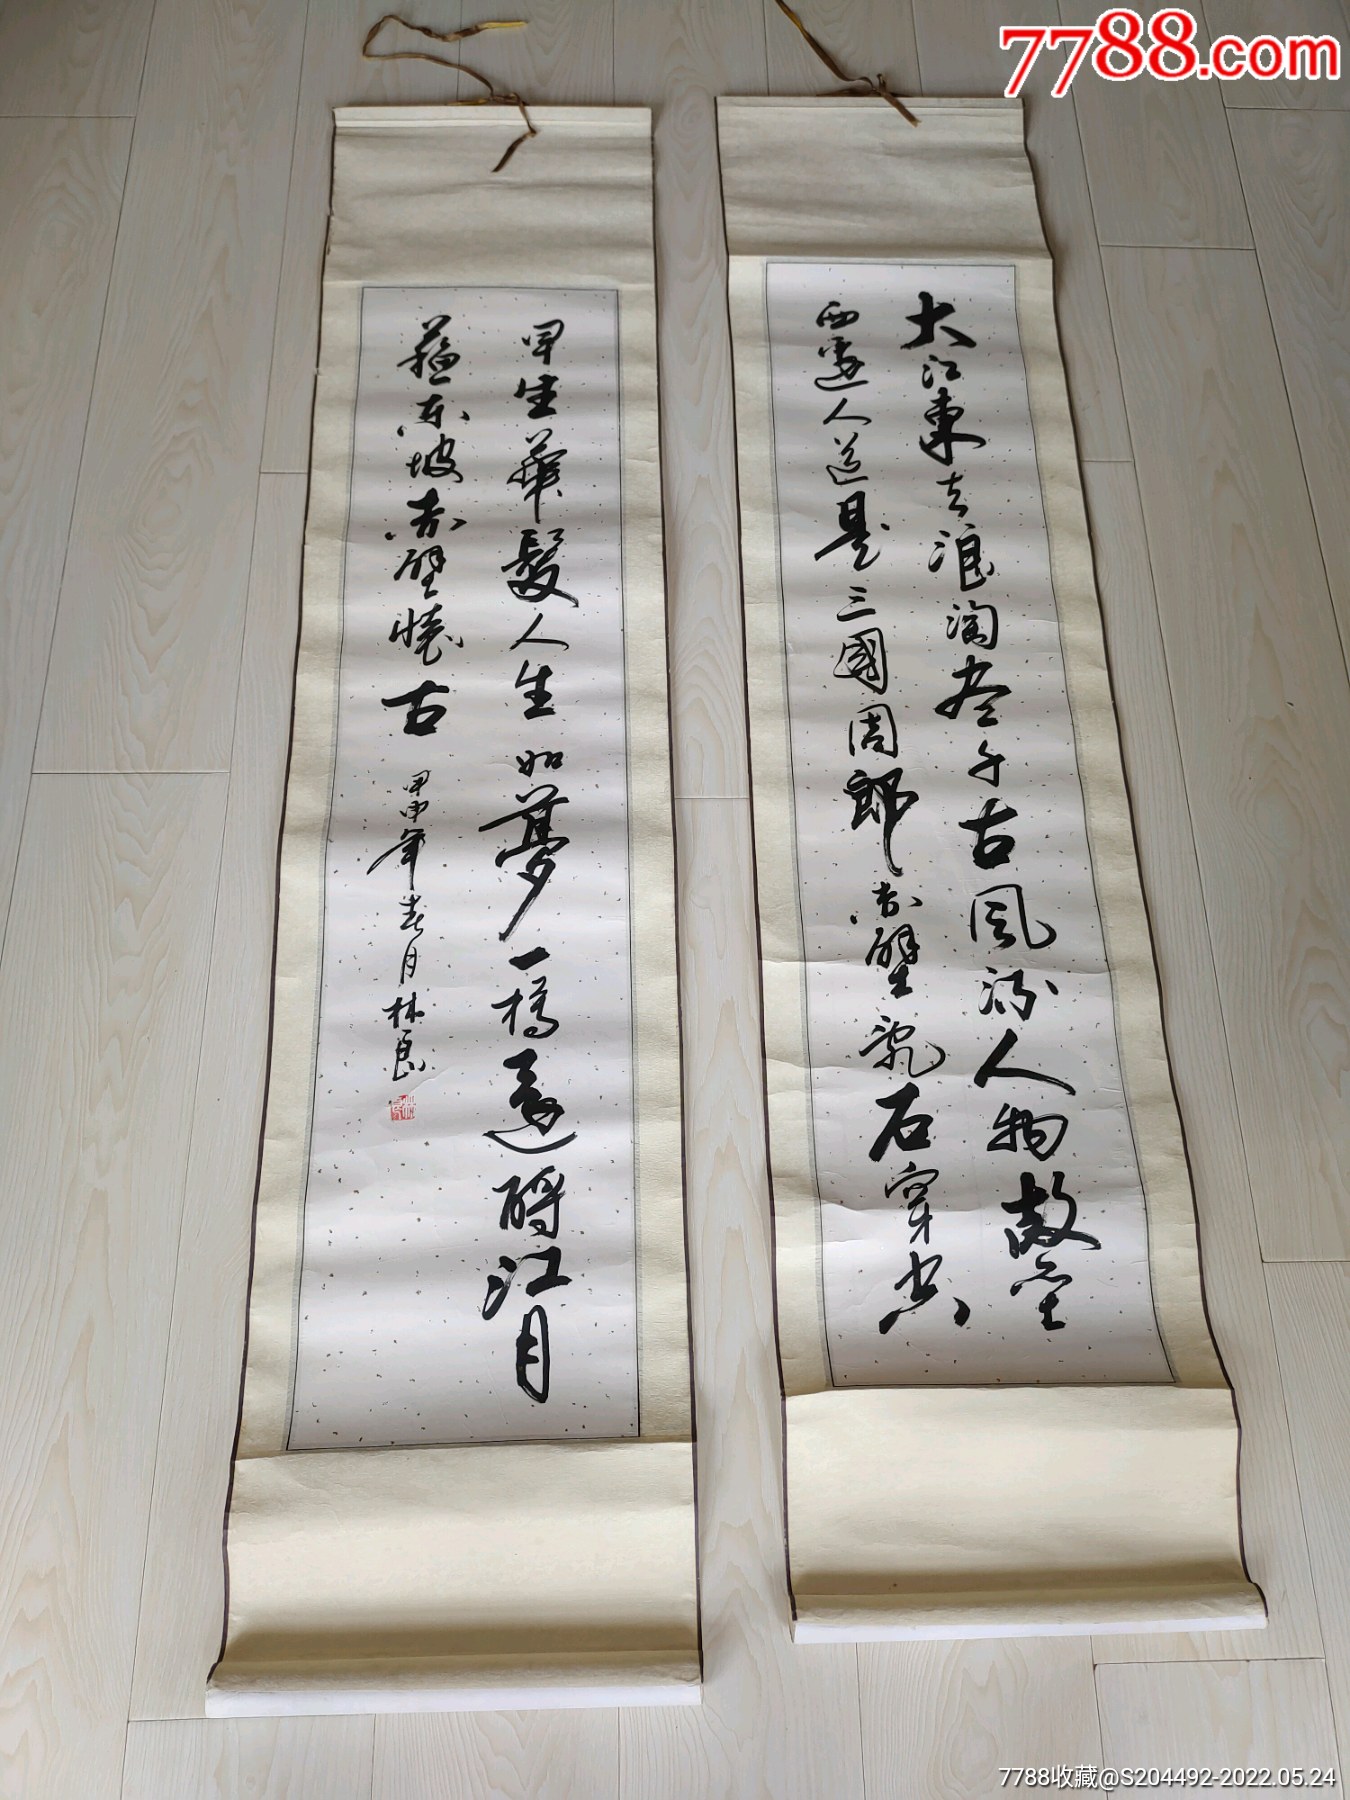 7788.com
大江東去浪淘盡千古風流人物故壘
西邊人道是三國周郎赤壁亂石穿空
早生華髮人生如夢一樽還酹江月
蘇东坡赤壁懷古
甲申年春月林良
7788收藏@S204492-2022.05.24